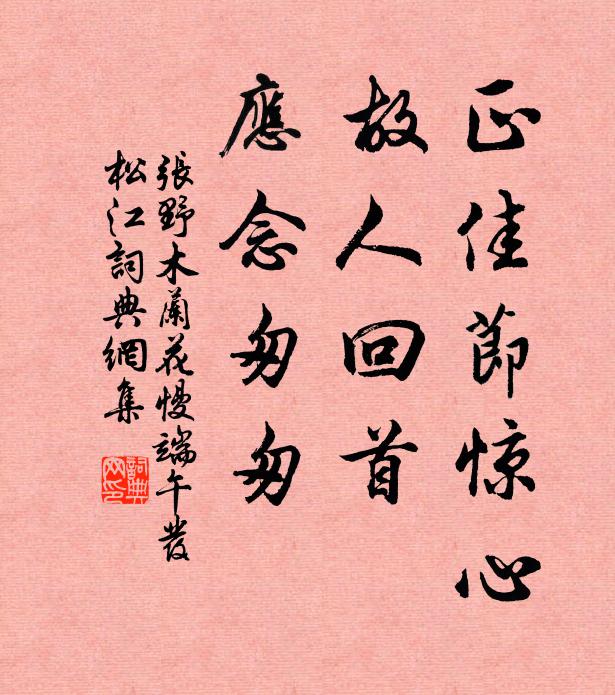 正佳節惊心
故人回首
應念匆匆
張野木蘭花慢端午發
松江詞典網集
詞典網印